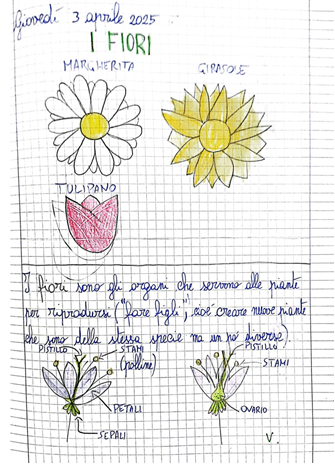 Giovedì 3 aprile 2025
I FIORI
MARGHERITA GIRASOLE
TULIPANO
I fiori sono gli organi che servono alle piante
per riprodursi ("fare figli", cioè creare nuove piante
che sono della stessa specie ma un po' diverse).
PISTILLO STAMI PISTILLO
(polline) STAMI
PETALI OVARIO
SEPALI
V.